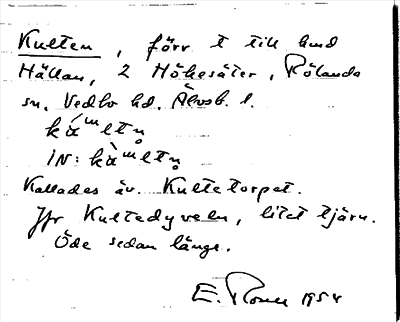 Kulten, förr t till hmd
Hällan, 2 Hökesäter, Rölanda
sn. Vedbo hd. Älvsb. l.
IN:
Kallades äv. Kultetorpet.
Jfr Kultedyveln, litet tjärn.
Öde sedan länge.
E. 1954